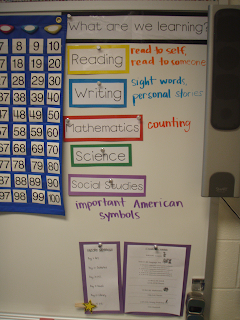 What are we learning?
7 8 9 10
17 18 19 20
27 28 29 30
37 38 39 40
47 48 49 50
57 58 59 60
67 68 69 70
77 78 79 80
87 88 89 90
97 98 99 100
Reading
read to self,
read to someone
Writing
sight words
personal stories
Mathematics
counting
Science
Social Studies
important American
symbols